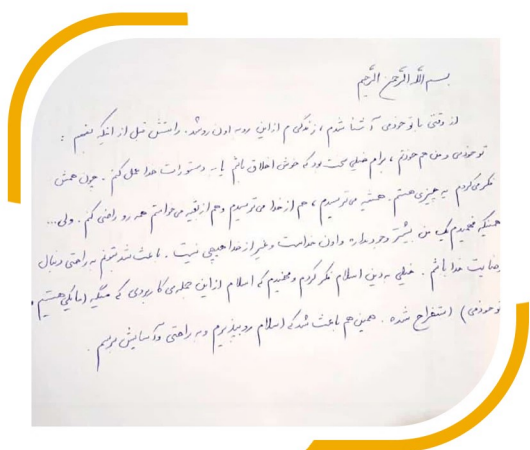 بسم الله الرحمن الرحیم
از وقتی با توحیدی آشنا شدم، زندگی م از این رو به اون رو شد. راستش قبل از اینکه بفهمم :
تو خودمی و من هم خودتم، برام خیلی سخت بود که خوش اخلاق باشم یا به دستورات خدا عمل کنم. چون همش
فکر می‌کردم یه چیزی هستم. همیشه می‌ترسیدم، هم از خدا می‌ترسیدم و هم از بقیه می‌خواستم همه رو راضی کنم. ولی...
همینکه فهمیدم یک من بیشتر وجود نداره و اون خداست و غیر از خدا هیچی نیست. باعث شد بتونم به راحتی دنبال
رضایت خدا باشم. خیلی به دین اسلام فکر کردم و فهمیدم که اسلام از این جمله‌ی کاربردی که میگه (ما یکی هستیم،
تو خودمی) استخراج شده. همین هم باعث شد که اسلام رو بپذیرم و به راحتی و آسایش برسم.